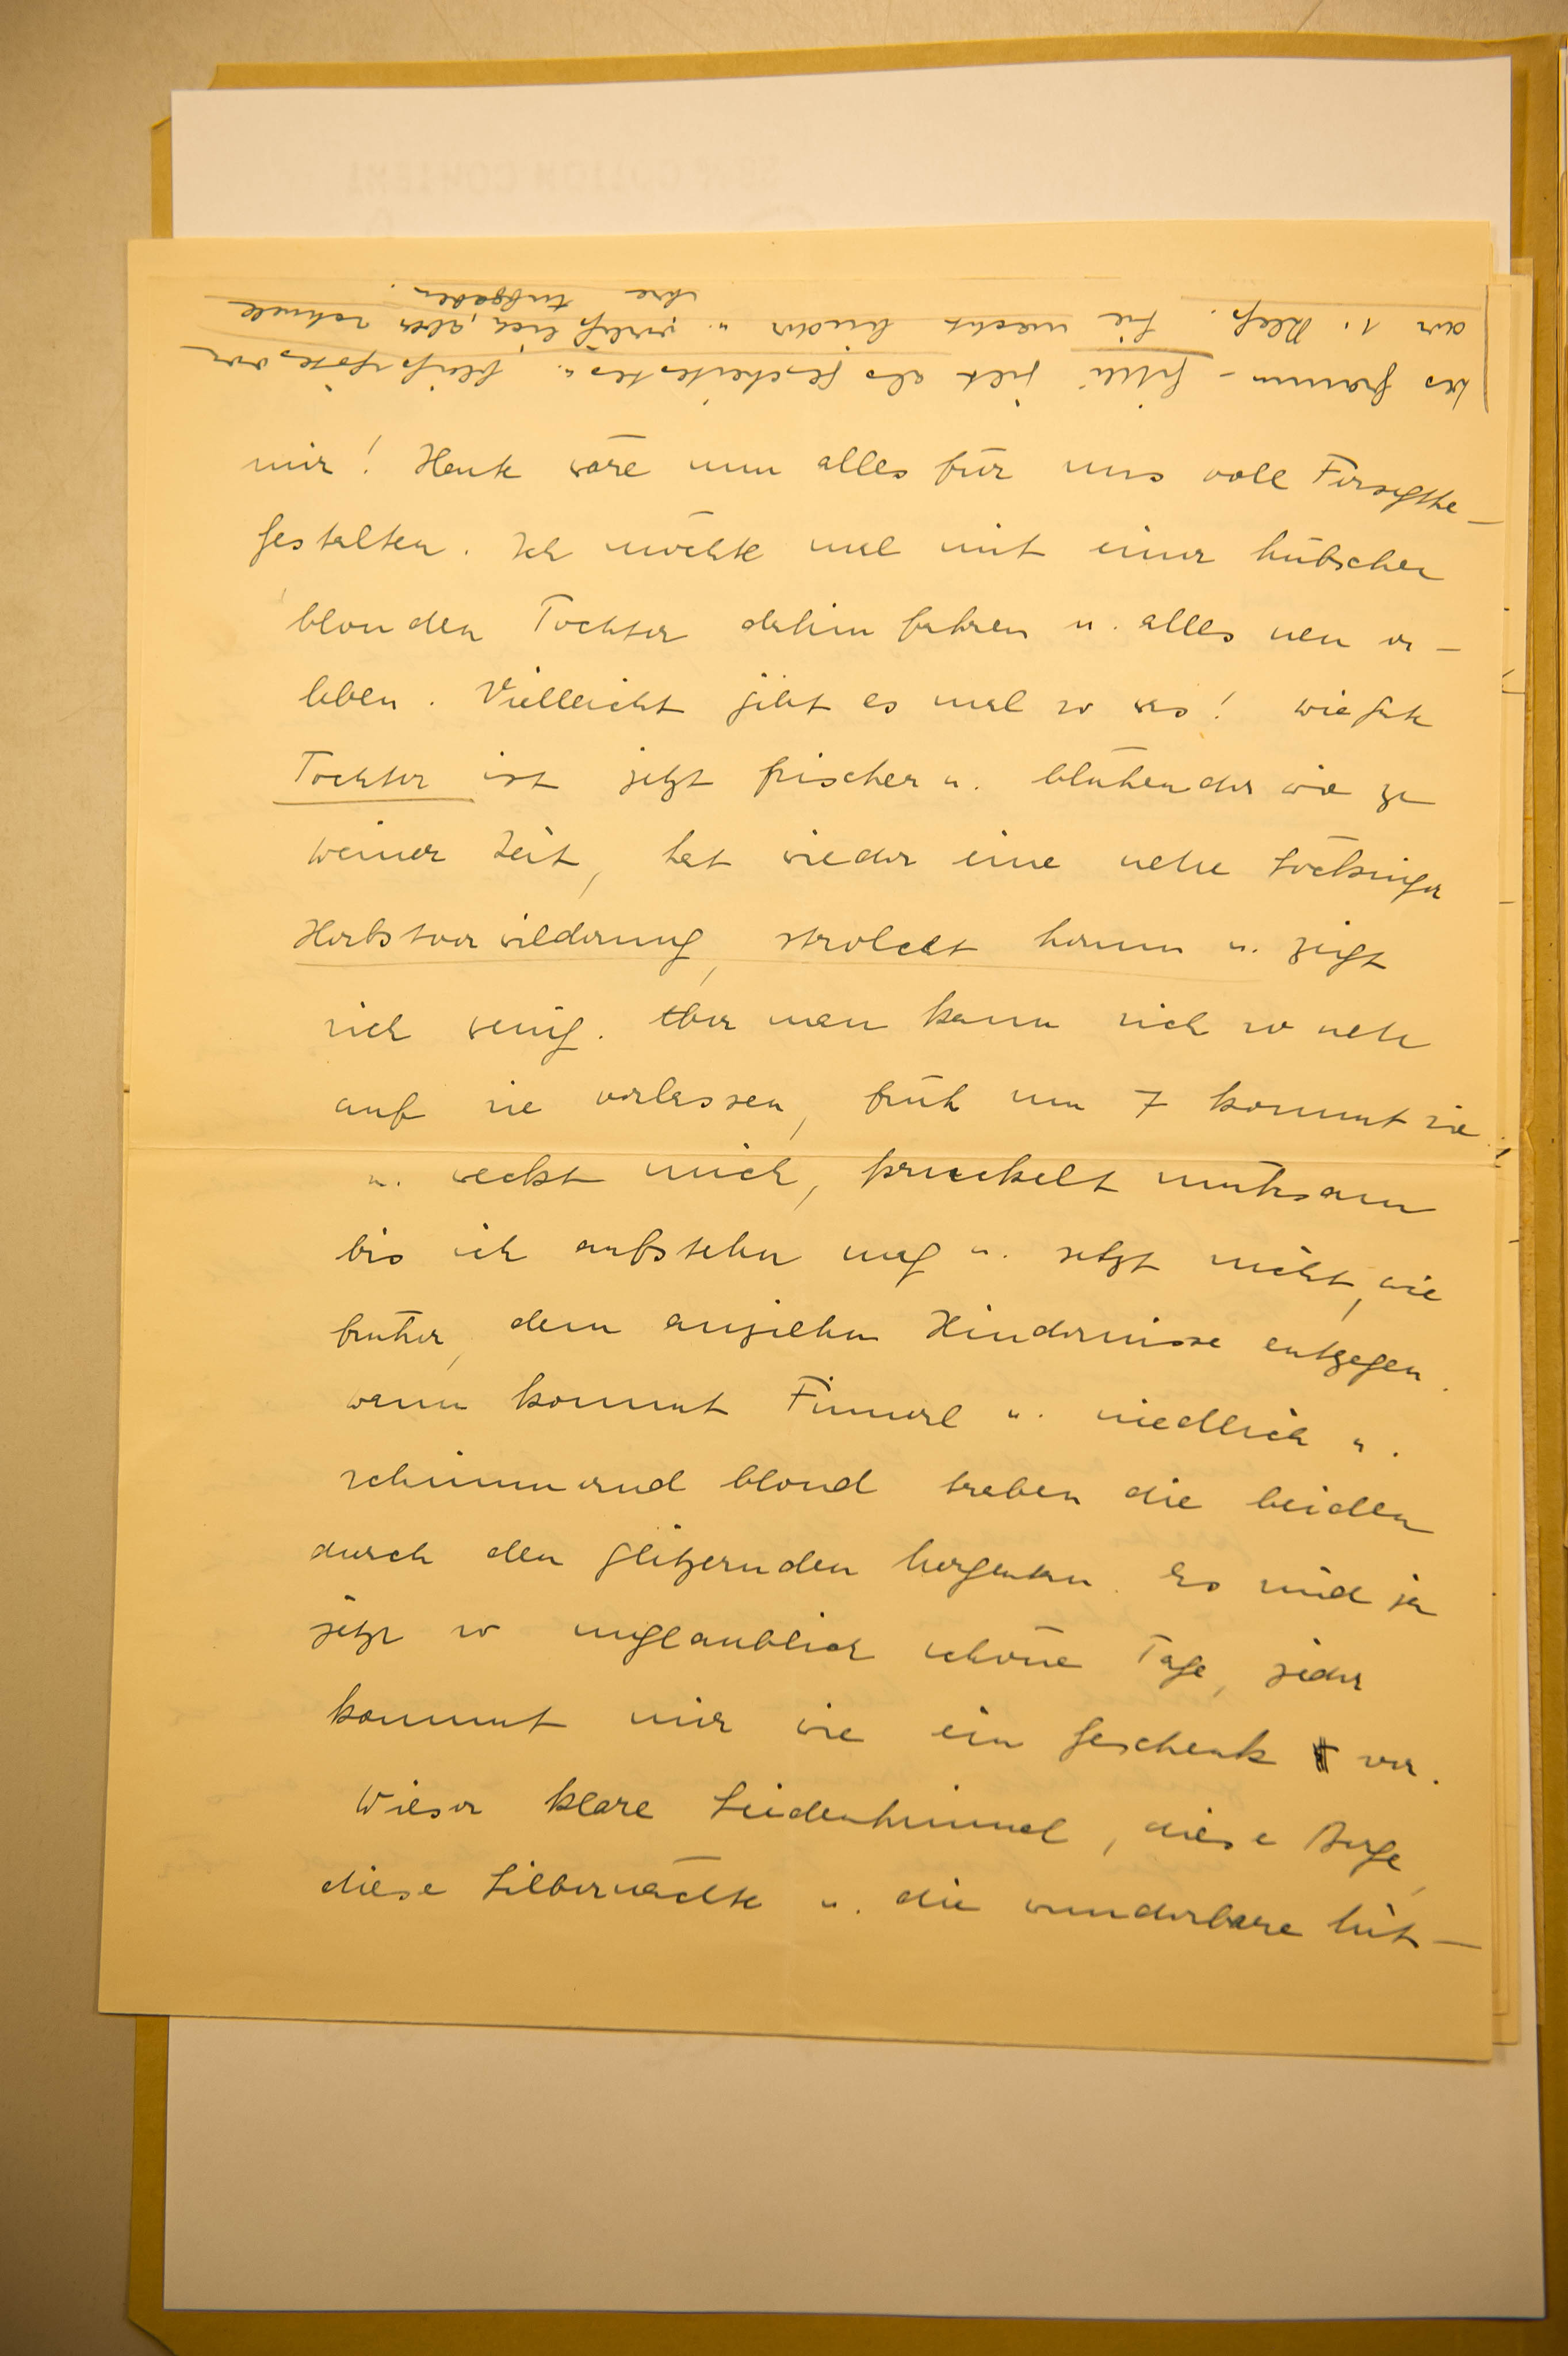 mir! Heute wäre nun alles für uns voll Forsythe-
gestalten. Ich möchte mal mit einer hübschen
blonden Tochter dahin fahren u. alles neu er-
leben. Vielleicht gibt es mal so was! Die gute
Tochter ist jetzt frischer u. blühender wie zu
Deiner Zeit, hat wieder eine nette
Herbstverwilderung, strolcht herum u. zeigt
sich wenig. Aber man kann sich so nett
auf sie verlassen, früh um 7 kommt sie
u. weckt mich, pruckelt mühsam
bis ich aufstehn mag u. setzt nicht, wie
früher, dem anziehn Hindernisse entgegen.
Dann kommt Fimmerl u. niedlich u.
schimmernd blond traben die beiden
durch den glitzernden Morgentau. Es sind ja
jetzt so unglaublich schöne Tage, jeder
kommt mir wie ein Geschenk vor.
Dieser klare Seidenhimmel, diese Berge,
diese Silbernächte u. die wunderbare Luft-
des Gramm- Sibi gilt als gescheitestes u. fleißigstes von
der 1. Klass. Sie macht linder u. verläßlich, aber schnell
ihre Aufgaben.